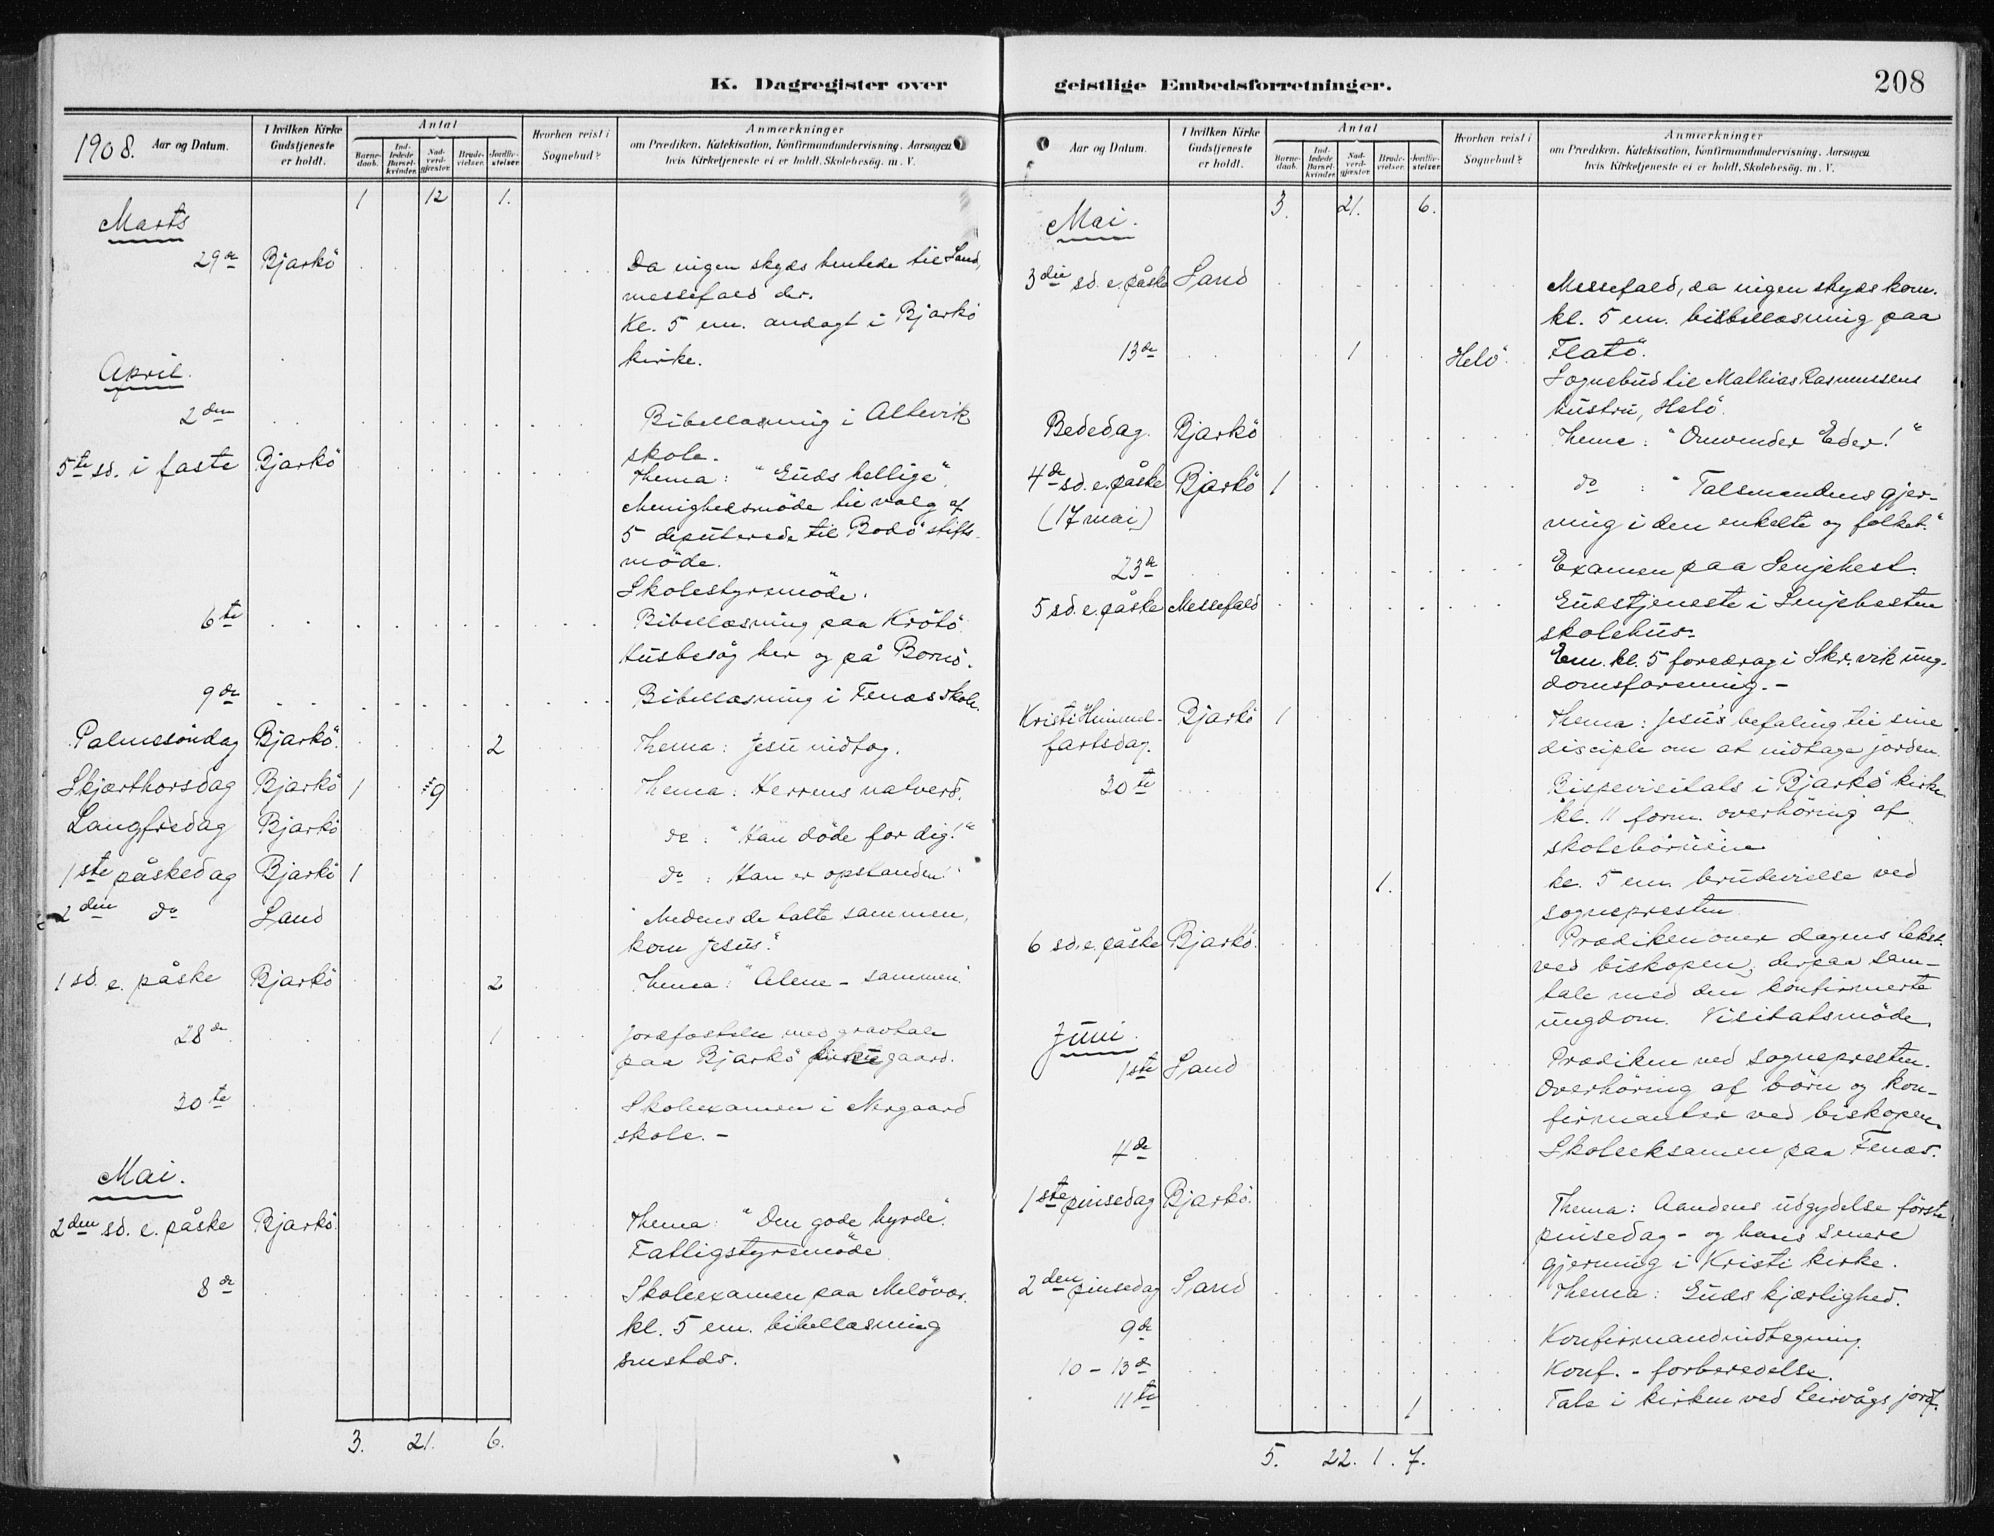 K. Dagregister over
1908. Aar og Datum. I hvilken Kirke Gudstjeneste er holdt. Antal Barnedaab. Indledede Barselkvinder. Nadverdgjæster. Brudevielser. Jordfæstelser. Hvorhen reist i Sognebud? Anmærkninger om Prædiken, Katekisation, Konfirmandundervisning, Aarsagen hvis Kirketjeneste ei er holdt, Skolebesøg. m. V.
1 12 1.
Marts
29de Bjarkö Da ingen skyds hentede til Sand,
messefald der.
Kl. 5 em. andagt i Bjarkö
kirke.
April.
2den Bibellæsning i Altevik
skole.
5te sd. i faste Bjarkö Thema: "Guds hellige".
Menighedsmöde til valg af
5 deputerede til Bodö stifts-
möde.
Skolestyremöde.
6te Bibellæsning paa Krötö.
Husbesög her og på Bornö.
9de Bibellæsning i Fenæs skole.
Palmesöndag Bjarkö. 2 Thema: Jesu indtog.
Skjærthorsdag Bjarkö 1 9 Thema: Herrens natverd.
Langfredag Bjarkö do: "Han döde for dig!"
1ste påskedag Bjarkö 1 do: Han er opstanden!"
2den do Sand "Medens de talte sammen,
kom Jesus."
1 sd. e. påske Bjarkö 2 Thema: "Alene - sammen".
28de 1 Jordfæstelse med gravtale
paa Bjarkö kirkegaard.
30te Skoleexamen i Nergaard
skole. -
Mai.
2den sd. e. påske Bjarkö. Thema: "Den gode hyrde".
Fattigstyremöde
8de Skoleexamen paa Melövær.
kl. 5 em. bibellæsning
smstds.
3. 21. 6.
geistlige Embedsforretninger.
208
Aar og Datum. I hvilken Kirke Gudstjeneste er holdt. Antal Barnedaab. Indledede Barselkvinder. Nadverdgjæster. Brudevielser. Jordfæstelser. Hvorhen reist i Sognebud? Anmærkninger om Prædiken, Katekisation, Konfirmandundervisning, Aarsagen hvis Kirketjeneste ei er holdt, Skolebesøg. m. V.
3. 21. 6.
Mai.
3die sd. e. påske Sand Messefald, da ingen skyds kom.
kl. 5 em. bibellæsning paa
Flatö.
13de 1 Helö. Sognebud til Mathias Rasmussens
hustru, Helö.
Bededag. Bjarkö Thema: "Omvender Eder!"
4de sd. e. påske Bjarkö 1 do: "Talsmandens gjer-
(17 mai) ning i den enkelte og folket."
23de Examen paa Senjehest.
5 sd. e. påske Messefald Gudstjeneste i Senjehesten
skolehus.
Em. kl. 5 foredrag i Skr.vik ung-
domsforening. -
Kristi Himmel- Bjarkö 1 Thema: Jesus befaling til sine
fartsdag. disciple om at indtage jorden.
30te Bispevisitats i Bjarkö kirke
kl. 11 form. overhöring af
skolebörnene
1. kl. 5 em. brudevielse ved
sognepresten
6 sd. e. påske Bjarkö. Prædiken over dagens tekst
ved biskopen, derpaa sam-
tale med den konfirmerte
ungdom. Visitatsmöde.
Juni.
1ste Sand Prædiken ved sognepresten.
Overhöring af börn og kon-
firmanter ved biskopen.
4de Skoleeksamen paa Fenæs.
1ste pinsedag Bjarkö. Thema: Aandens udgydelse förste
pinsedag - og hans senere
gjerning i Kristi kirke.
2den pinsedag Sand Thema: Guds kjærlighed.
9de Konfirmandindtegning.
10-13de Konf. - forberedelse.
11te 1 Tale i kirken ved Leirvågs jordf.
5. 22. 1. 7.